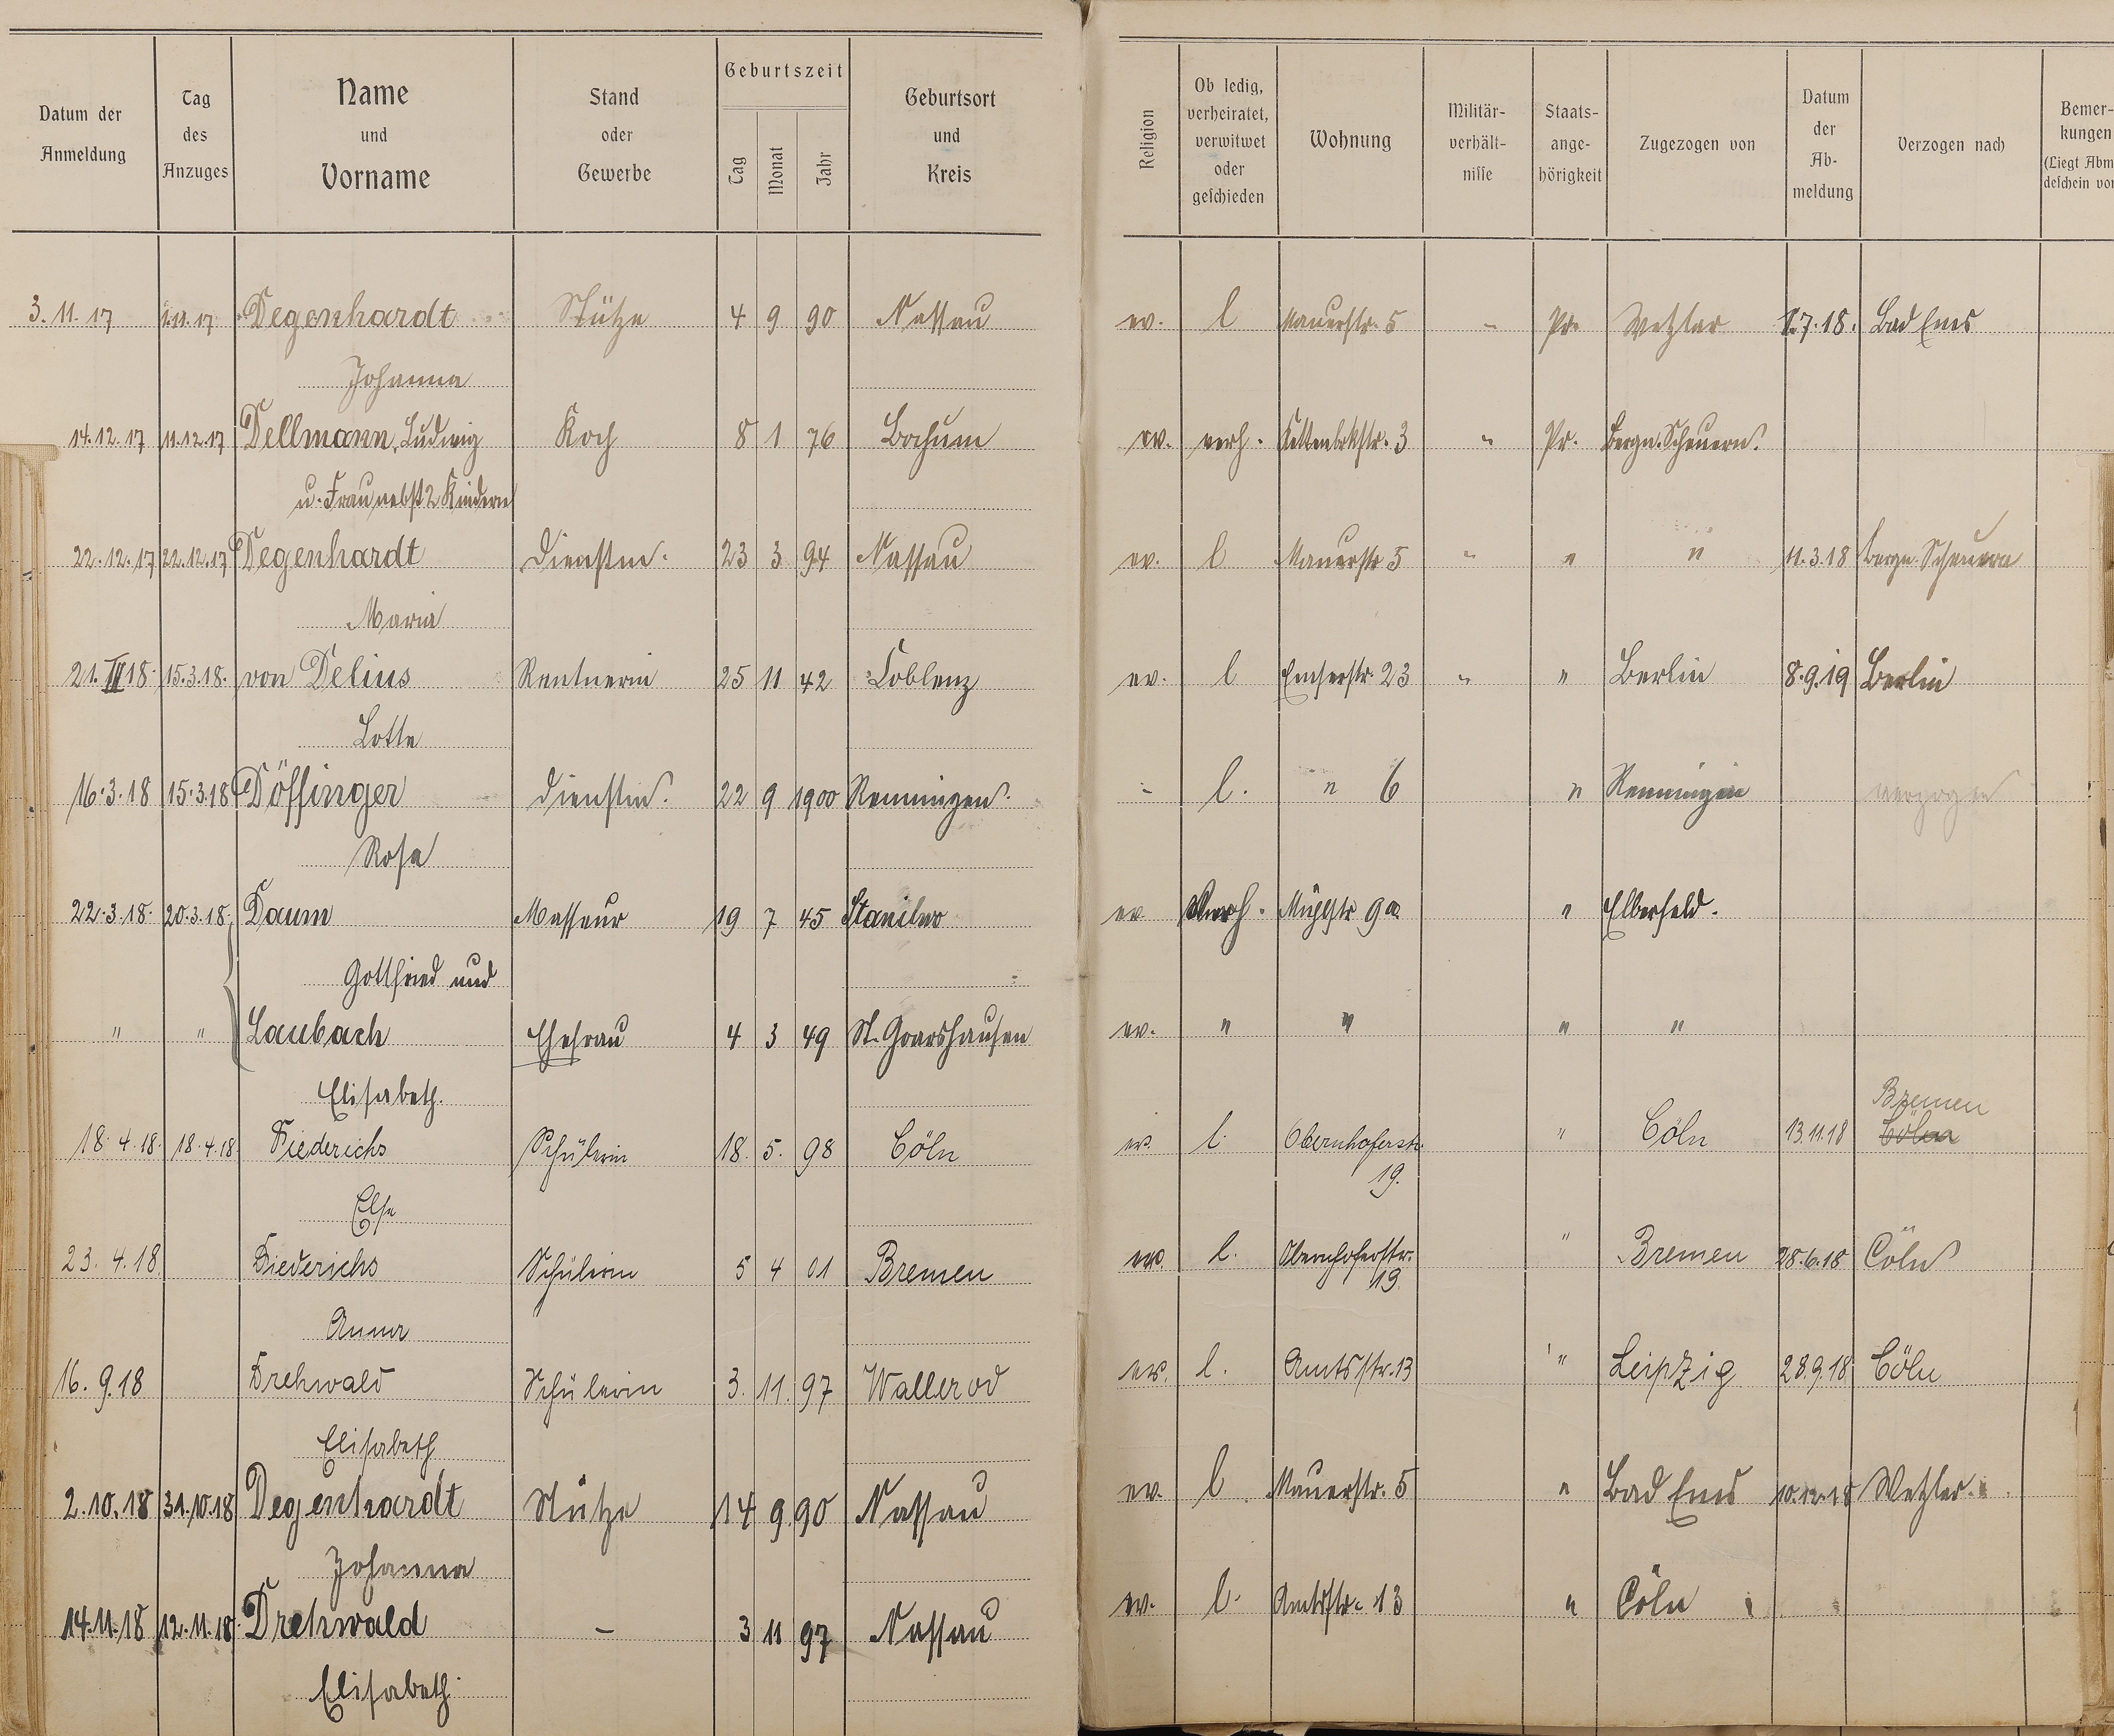 Datum der Anmeldung | Tag des Anzuges | Name und Vorname | Stand oder Gewerbe | Geburtszeit Tag Monat Jahr | Geburtsort und Kreis | Religion | Ob ledig, verheiratet, verwitwet oder geschieden | Wohnung | Militär-verhält-nisse | Staats-ange-hörigkeit | Zugezogen von | Datum der Ab-meldung | Verzogen nach | Bemer-kungen (Liegt Abm
3.11.17 Degenhardt Stütze 4 9 90 Nassau ev. l Mauerstr. 5 - Pr. Wetzlar 1.7.18. Bad Ems
Johanna
14.12.17 11.12.17 Dellmann, Ludwig Koch 8 1 76 Bochum ev. verh. Kettenbrkstr. 3 " Pr. Bergn. Scheuern
u. Frau nebst 2 Kindern
22.12.17 22.12.17 Degenhardt Dienstm. 23 3 94 Nassau ev. l Mauerstr 5 " " " 11.3.18 Bergn. Scheuern
Maria
21.III 18. 15.3.18. von Delius Rentnerin 25 11 42 Coblenz ev. l Emserstr. 23 " " Berlin 8.9.19 Berlin
Lotte
16.3.18 15.3.18 Döffinger Dienstm. 22 9 1900 Renningen. " l. " 6 " Renningen verzogen
Rosa
22.3.18. 20.3.18. Daum Masseur 19 7 45 ev Verh. Mühlstr 9a " Elberfeld.
Gottfried und
" " Laubach Ehefrau 4 3 49 St. Goarshausen ev. " " " "
Elisabeth.
Bremen
18.4.18. 18.4.18 Diederichs Schülerin 18. 5. 98 Cöln ev. l. Obernhoferstr. " Cöln 13.11.18 Cöln
19.
Else
23.4.18 Diederichs Schülerin 5 4 01 Bremen ev. l. Obernhoferstr. " Bremen 28.6.18 Cöln
19.
Anna
16.9.18 Drehwald Schülerin 3. 11. 97 Wallerod ev. l. Amtsstr. 13 " Leipzig 28.9.18. Cöln
Elisabeth
2.10.18 31.10.18 Degenhardt Stütze 14 9 90 Nassau ev. l. Mauerstr. 5 " Bad Ems 10.12.18 Wetzlar.
Johanna
14.11.18 12.11.18. Drehwald - 3 11 97 Nassau ev. l. Amtsstr. 13 " Cöln
Elisabeth.